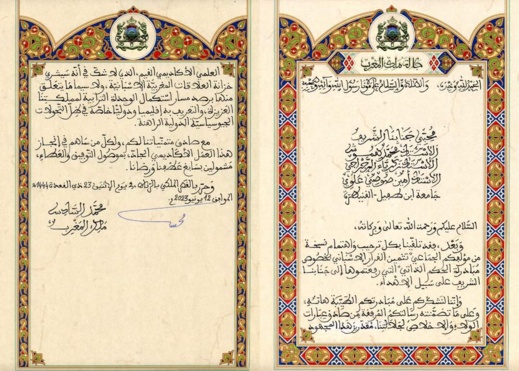 الحمد لله وحده، والصلاة والسلام على مولانا رسول الله وآله وصحبه
الأستاذ أمين صوصي علوي
جامعة ابن طفيل - القنيطرة
السلام عليكم ورحمة الله تعالى وبركاته،
وبعد، فقد تلقينا بكل ترحيب واهتمام نسخة
من مؤلفكم الجماعي "تثمين القرار الإسباني بخصوص
مبادرة الحكم الذاتي" التي رفعتموها إلى جنابنا
الشريف على سبيل الإهداء.
وإننا لنشكركم على مبادرتكم الطيبة هاته،
وعلى ما تضمنته رسالتكم المرفقة من عبارات
الولاء والإخلاص لجلالتنا، مقدرين هذا المجهود
العلمي الأكاديمي القيم، الذي لا شك في أنه سيثري
خزانة العلاقات المغربية الإسبانية، ولا سيما ما يتعلق
منها برصد مسار استكمال الوحدة الترابية لمملكتنا
العزيزة، والتعريف به إقليميا ودوليا خاصة في ظل التحولات
الجيوسياسية الدولية الراهنة.
مع صادق متمنياتنا لكم، ولكل من ساهم في إنجاز
هذا العمل الأكاديمي الجاد، بموصول التوفيق والعطاء،
مشمولين بسابغ عطفنا ورضانا.
وحرر بالقصر الملكي بالرباط في يوم الاثنين 23 ذي القعدة 1444هـ
الموافق 12 يونيو 2023م.
محمد السادس
ملك المغرب